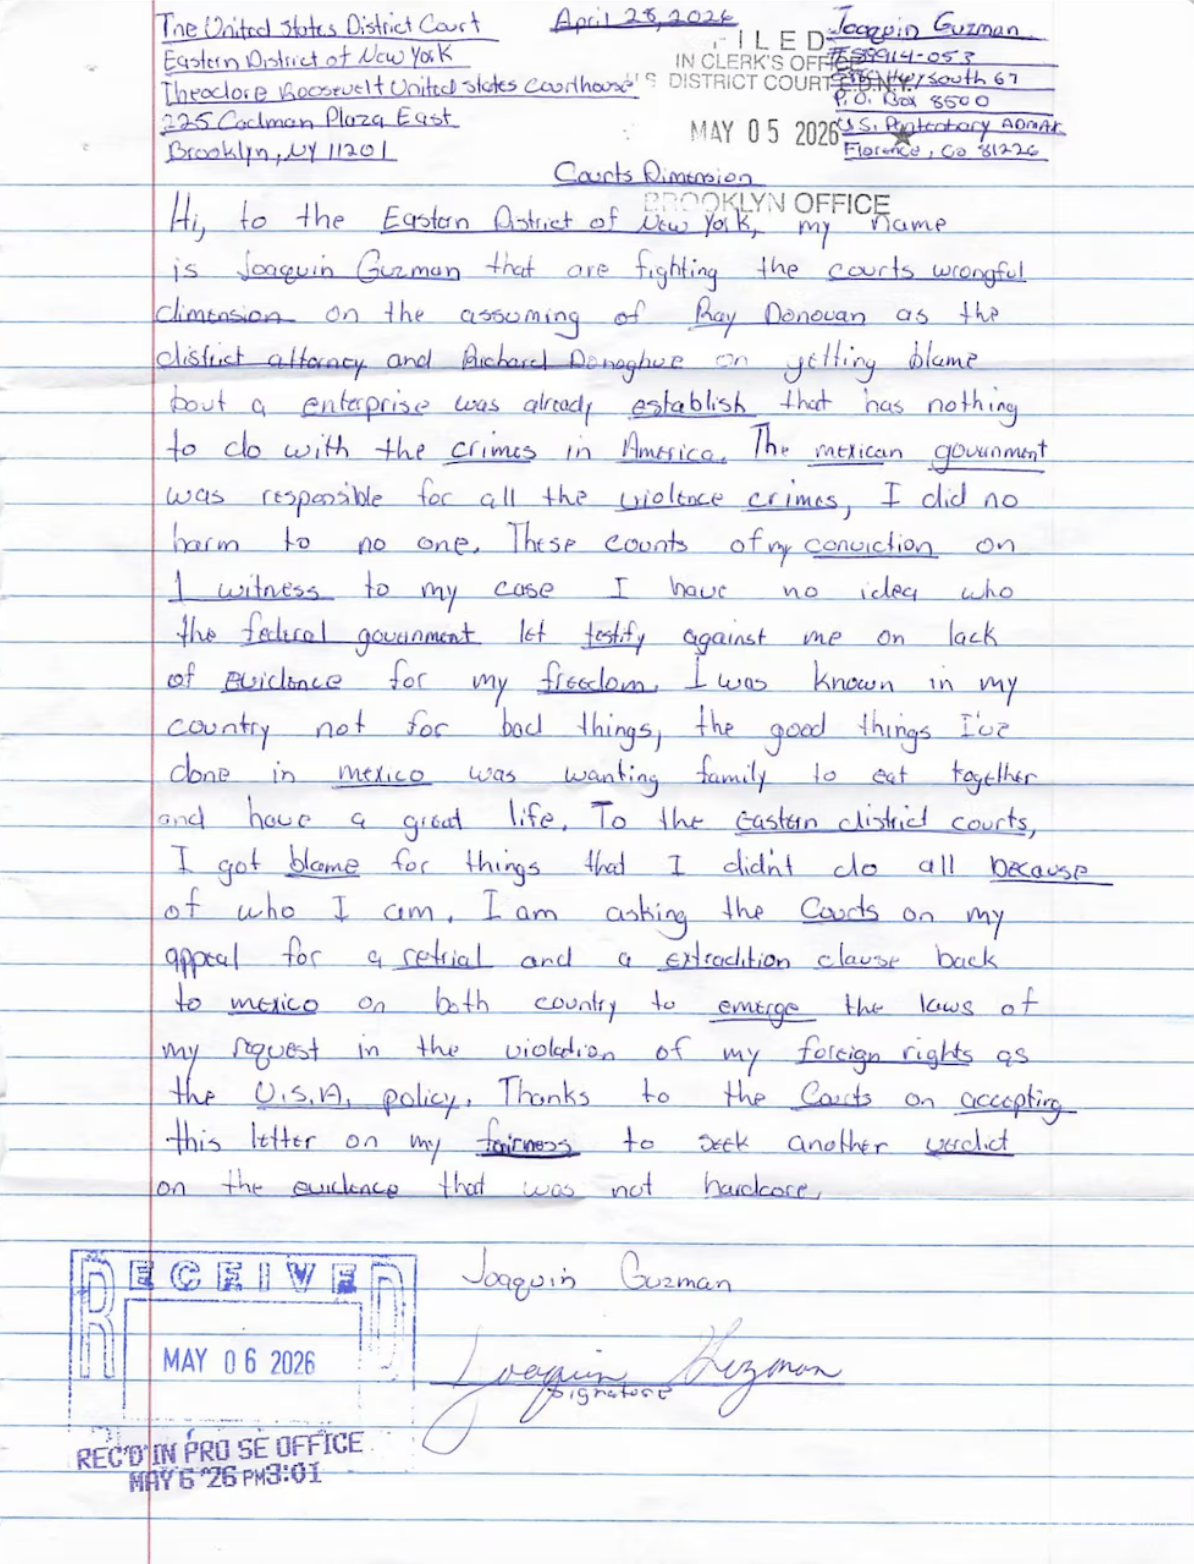 The United States District Court
Eastern District of New York
Theodore Roosevelt United States Courthouse's
225 Cadman Plaza East
Brooklyn, NY 11201
April 28, 2026
FILED
IN CLERK'S OFFICE
DISTRICT COURT E.D.N.Y.
MAY 05 2026 ★
BROOKLYN OFFICE
Joaquin Guzman
#89914-053
Hwy South 67
P.O. Box 8500
U.S. ADMAX
Florence, Co 81226
Courts Dimension
Hi, to the Eastern District of New York, my name
is Joaquin Guzman that are fighting the courts wrongful
dimension on the assuming of Ray Donovan as the
district attorney and Richard Donoghue on getting blame
bout a enterprise was already establish that has nothing
to do with the crimes in America. The mexican government
was responsible for all the violence crimes, I did no
harm to no one. These counts of my conviction on
1 witness to my case I have no idea who
the federal government let testify against me on lack
of evidence for my freedom. I was known in my
country not for bad things, the good things I've
done in mexico was wanting family to eat together
and have a great life. To the Eastern district courts,
I got blame for things that I didn't do all because
of who I am. I am asking the Courts on my
appeal for a retrial and a extradition clause back
to mexico on both country to emerge the laws of
my request in the violation of my foreign rights as
the U.S.A. policy. Thanks to the Courts on accepting
this letter on my fairness to seek another verdict
on the evidence that was not hardcore.
Joaquin Guzman
Joaquin Guzman
Signature
RECEIVED
MAY 06 2026
REC'D IN PRO SE OFFICE
MAY 6 '26 PM3:01